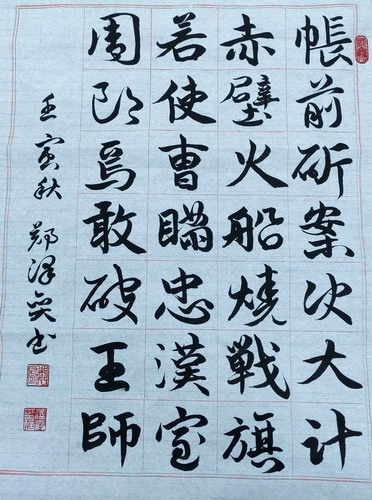 帳前斫案决大計
赤壁火船燒戰旗
若使曹瞞忠漢室
周郎焉敢破王師
壬寅秋 鄭澤书